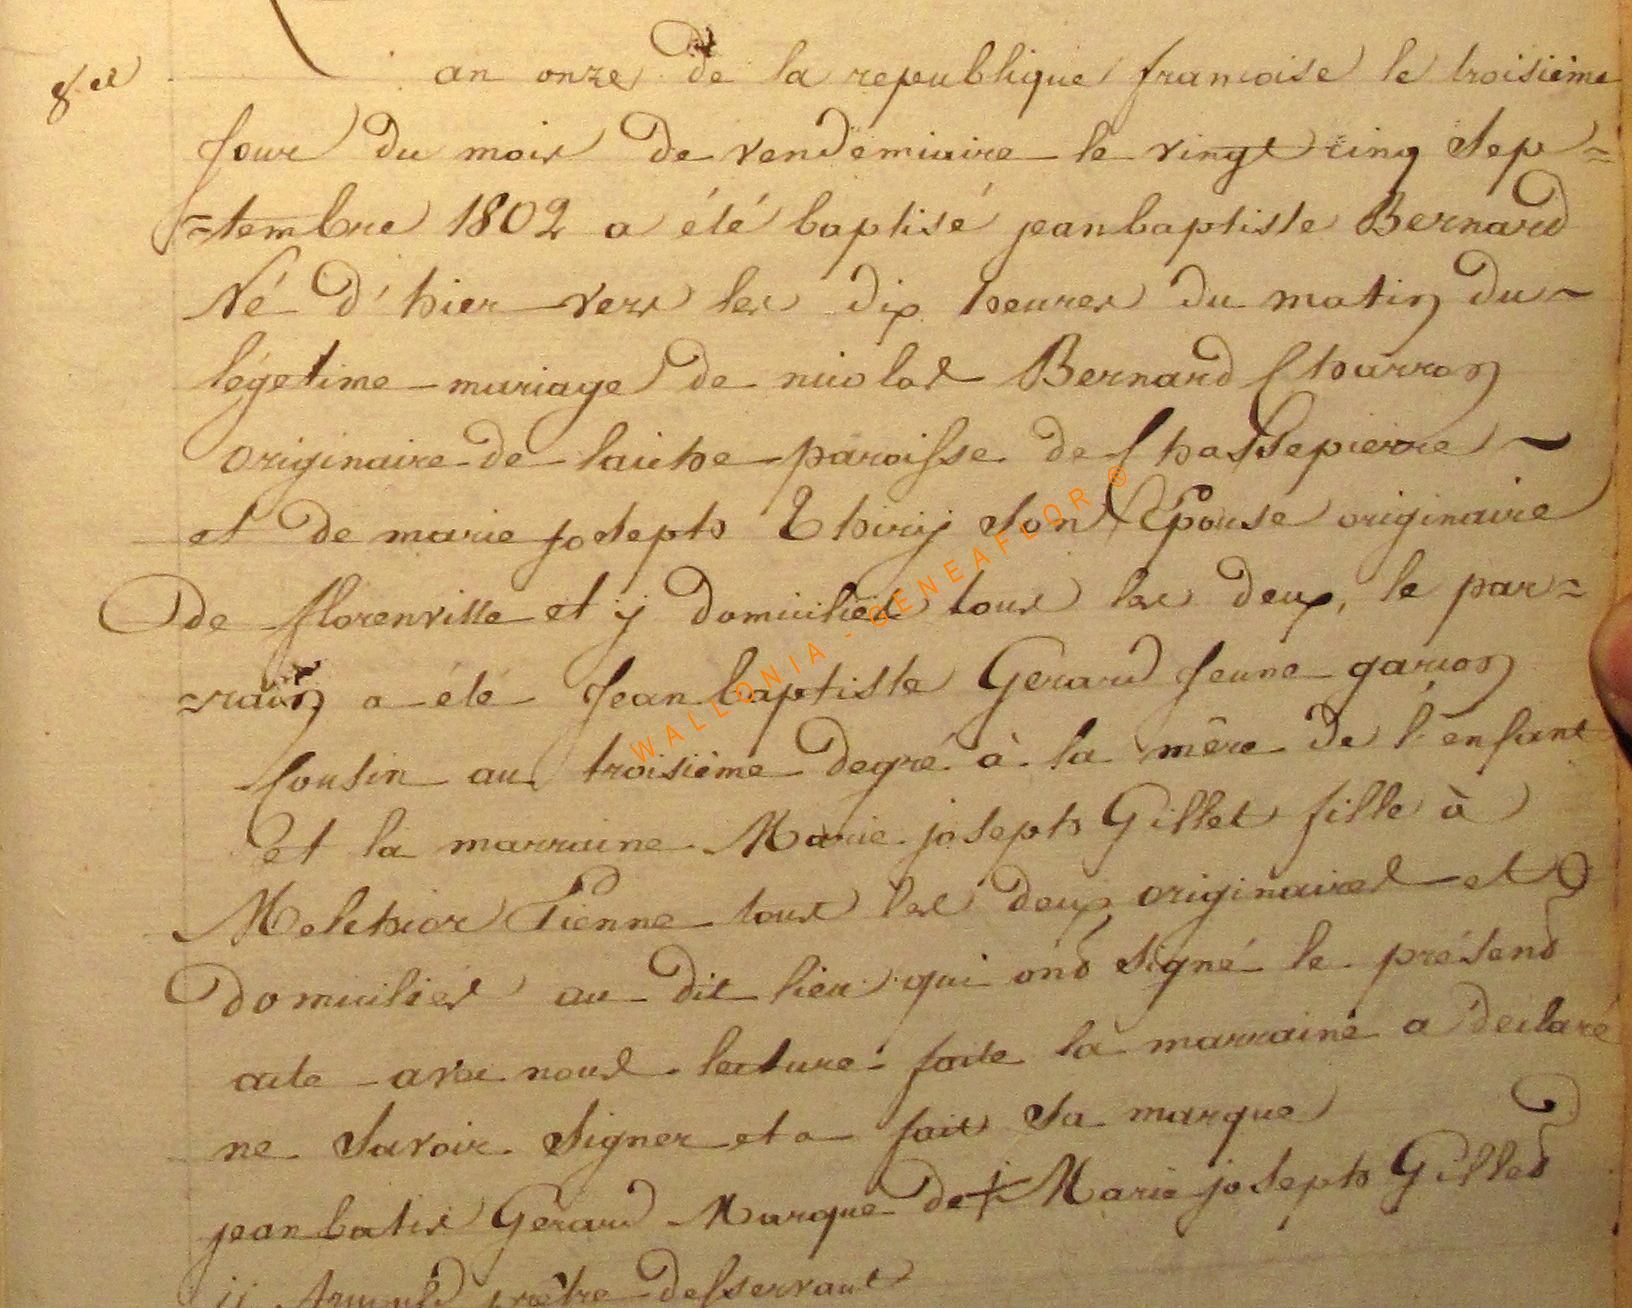 8.et an onze de la republique francoise le troisieme
Jour du mois de vendemiaire le vingt cinq Sep=
=tembre 1802 a été baptisé jeanbaptiste Bernard
Né d'hier vers les dix heures du matin du
légetime mariage de nicolas Bernard Charron
originaire de laiche paroisse de Chassepierre
et de marie joseph Thiry son Epouse originaire
De florenville et y domiciliés tous les deux, le par=
=rain a été Jean baptiste Gerard Jeune garcon
Cousin au troisième degré à la mère de l'enfant
et la marraine Marie joseph Gillet fille à
Melchior Tienne tous les deux originaires et
domicilies au dit lieu qui ond signé le présend
acte avec nous lecture faite la marraine a déclaré
ne Savoir Signer et a fait Sa marque
jean batis Gerard Marque de + Marie joseph Gilled
prêtre desservant
WALLONIA - GENEAFLOR ®